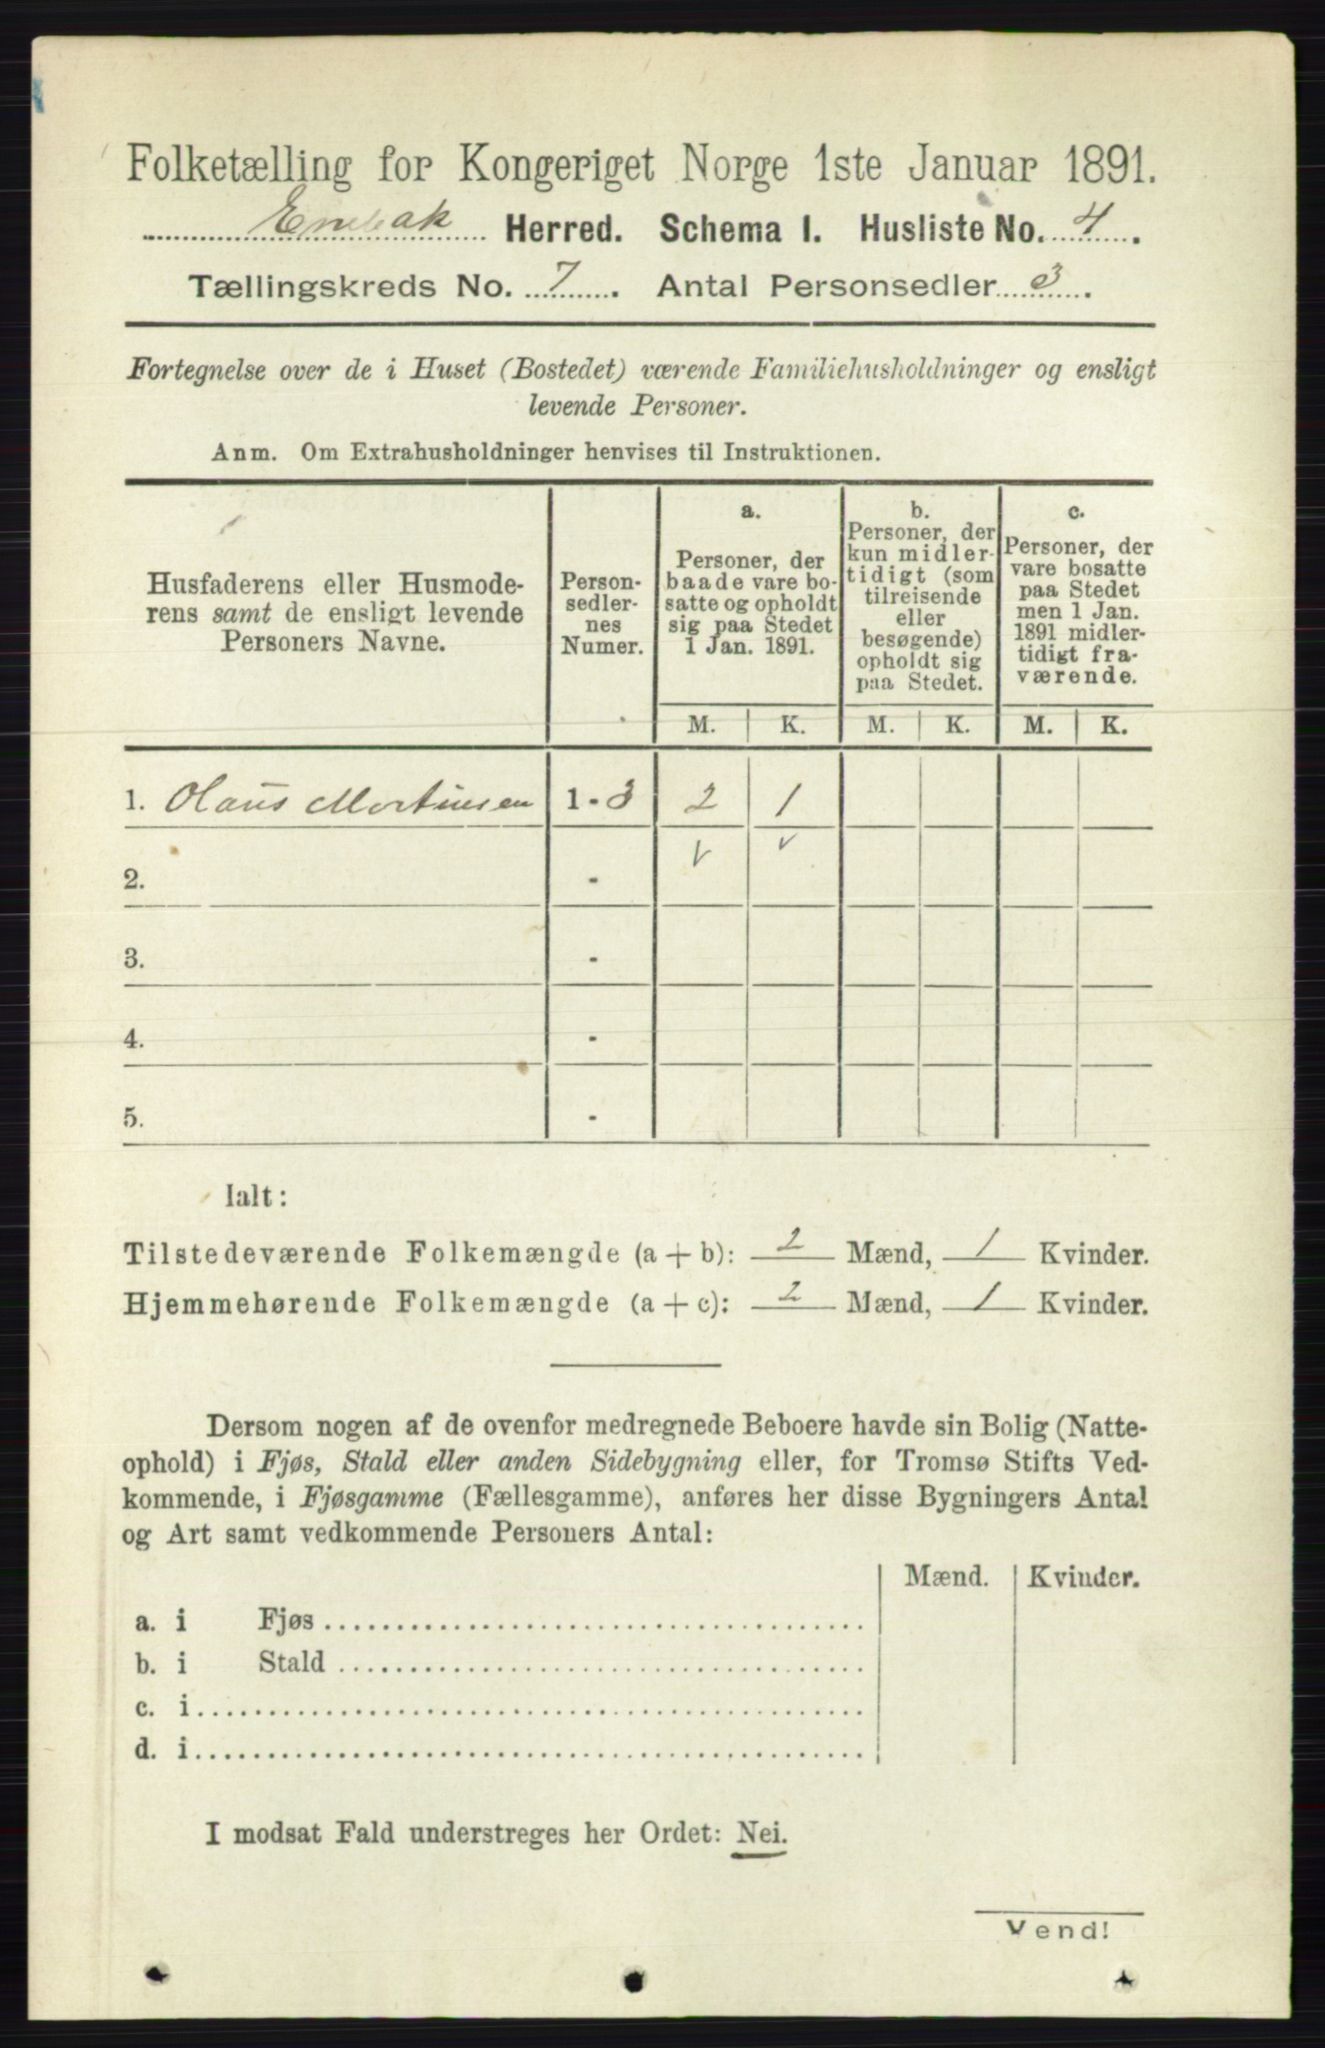 Folketælling for Kongeriget Norge 1ste Januar 1891.
Enebak Herred. Schema I. Husliste No. 4.
Tællingskreds No. 7. Antal Personsedler 3.
Fortegnelse over de i Huset (Bostedet) værende Familiehusholdninger og ensligt
levende Personer.
Anm. Om Extrahusholdninger henvises til Instruktionen.
Husfaderens eller Husmode-
rens samt de ensligt levende
Personers Navne.
Person-
sedler-
nes
Numer.
a.
Personer, der
baade vare bo-
satte og opholdt
sig paa Stedet
1 Jan. 1891.
b.
Personer, der
kun midler-
tidigt (som
tilreisende
eller
besøgende)
opholdt sig
paa Stedet.
c.
Personer, der
vare bosatte
paa Stedet
men 1 Jan.
1891 midler-
tidigt fra-
værende.
M. K. M. K. M. K.
1. Olaus Mortinsen 1 - 3 2 1
2. - v v
3. -
4. -
5. -
Ialt:
Tilstedeværende Folkemængde (a + b): 2 Mænd, 1 Kvinder.
Hjemmehørende Folkemængde (a + c): 2 Mænd, 1 Kvinder.
Dersom nogen af de ovenfor medregnede Beboere havde sin Bolig (Natte-
ophold) i Fjøs, Stald eller anden Sidebygning eller, for Tromsø Stifts Ved-
kommende, i Fjøsgamme (Fællesgamme), anføres her disse Bygningers Antal
og Art samt vedkommende Personers Antal:
Mænd. Kvinder.
a. i Fjøs
b. i Stald
c. i
d. i
I modsat Fald understreges her Ordet: Nei.
Vend!